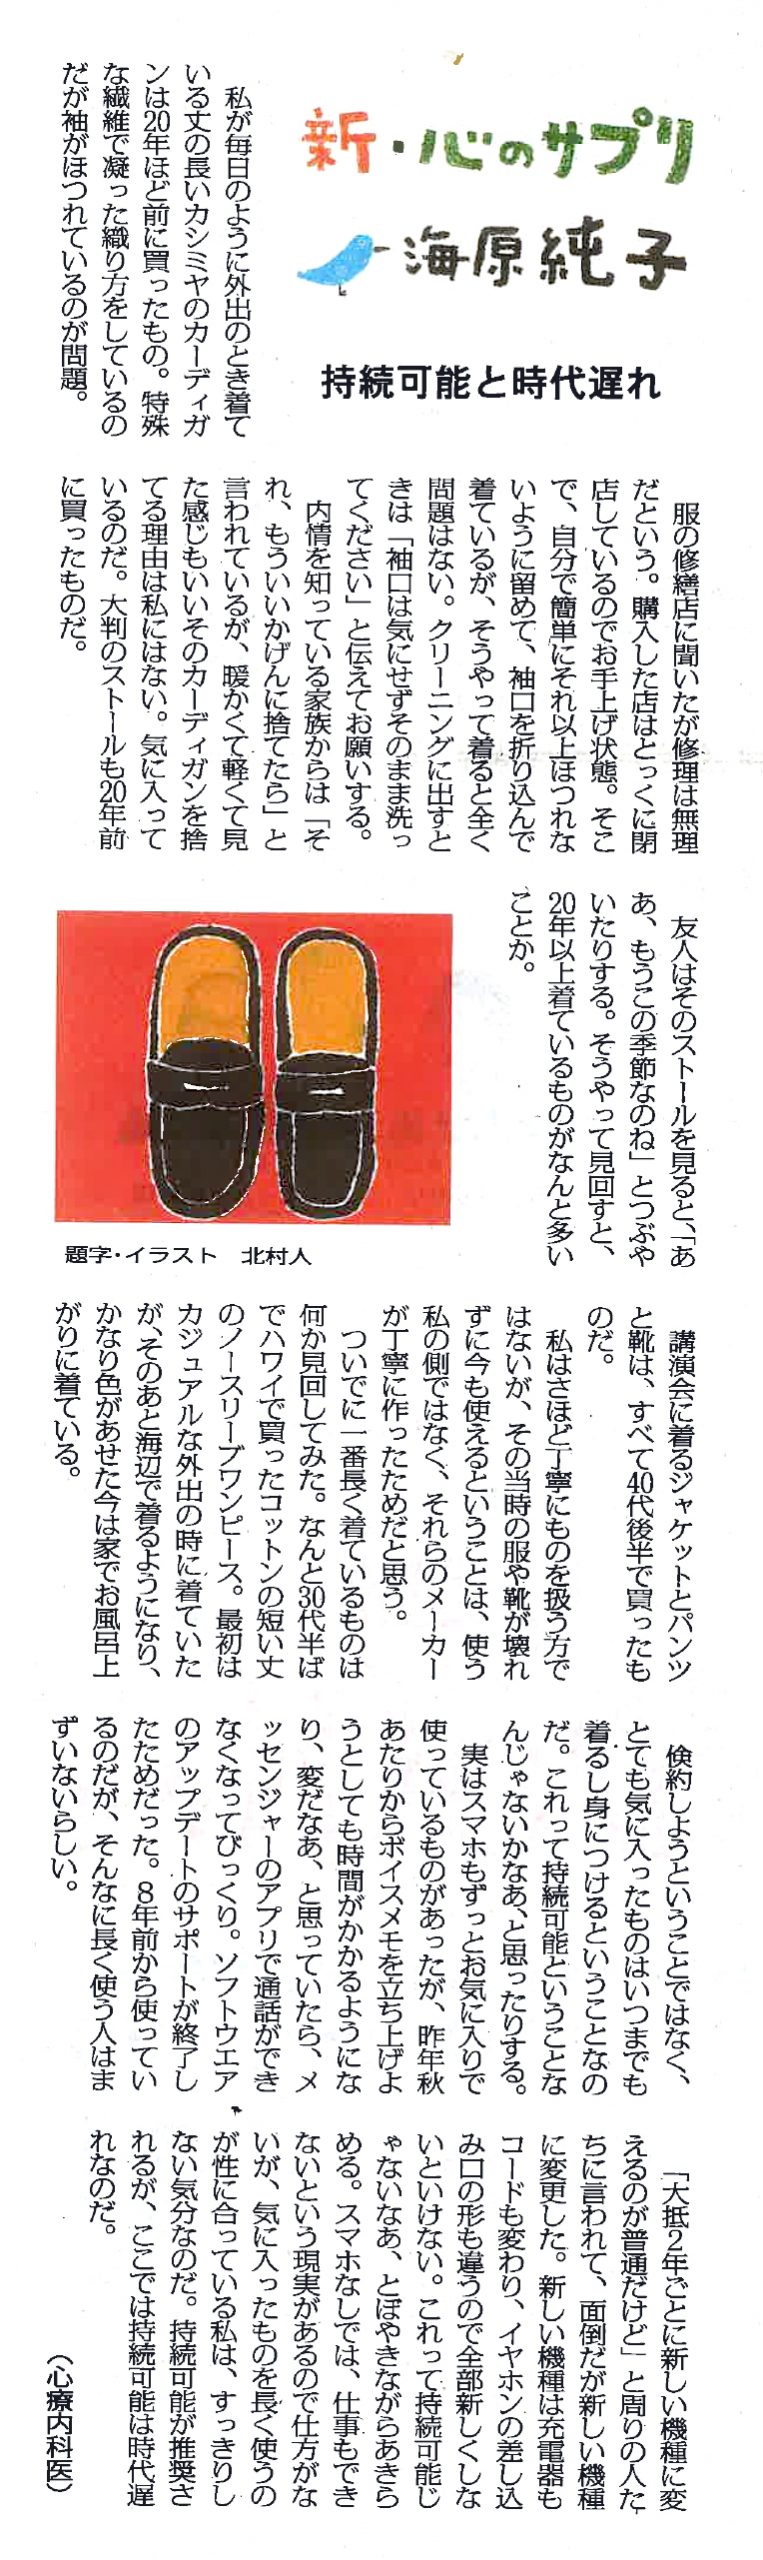 新・心のサプリ
海原純子
持続可能と時代遅れ
私が毎日のように外出のとき着て
いる丈の長いカシミヤのカーディガ
ンは20年ほど前に買ったもの。特殊
な繊維で凝った織り方をしているの
だが袖がほつれているのが問題。
服の修繕店に聞いたが修理は無理
だという。購入した店はとっくに閉
店しているのでお手上げ状態。そこ
で、自分で簡単にそれ以上ほつれな
いように留めて、袖口を折り込んで
着ているが、そうやって着ると全く
問題はない。クリーニングに出すと
きは「袖口は気にせずそのまま洗っ
てください」と伝えてお願いする。
内情を知っている家族からは「そ
れ、もういいかげんに捨てたら」と
言われているが、暖かくて軽くて見
た感じもいいそのカーディガンを捨
てる理由は私にはない。気に入って
いるのだ。大判のストールも20年前
に買ったものだ。
友人はそのストールを見ると、「あ
あ、もうこの季節なのね」とつぶや
いたりする。そうやって見回すと、
20年以上着ているものがなんと多い
ことか。
題字・イラスト 北村人
講演会に着るジャケットとパンツ
と靴は、すべて40代後半で買ったも
のだ。
私はさほど丁寧にものを扱う方で
はないが、その当時の服や靴が壊れ
ずに今も使えるということは、使う
私の側ではなく、それらのメーカー
が丁寧に作ったためだと思う。
ついでに一番長く着ているものは
何か見回してみた。なんと30代半ば
でハワイで買ったコットンの短い丈
のノースリーブワンピース。最初は
カジュアルな外出の時に着ていた
が、そのあと海辺で着るようになり、
かなり色があせた今は家でお風呂上
がりに着ている。
倹約しようということではなく、
とても気に入ったものはいつまでも
着るし身につけるということなの
だ。これって持続可能ということな
んじゃないかなあ、と思ったりする。
実はスマホもずっとお気に入りで
使っているものがあったが、昨年秋
あたりからボイスメモを立ち上げよ
うとしても時間がかかるようにな
り、変だなあ、と思っていたら、メ
ッセンジャーのアプリで通話ができ
なくなってびっくり。ソフトウエア
のアップデートのサポートが終了し
たためだった。8年前から使ってい
るのだが、そんなに長く使う人はま
ずいないらしい。
「大抵2年ごとに新しい機種に変
えるのが普通だけど」と周りの人た
ちに言われて、面倒だが新しい機種
に変更した。新しい機種は充電器も
コードも変わり、イヤホンの差し込
み口の形も違うので全部新しくしな
いといけない。これって持続可能じ
ゃないなあ、とぼやきながらあきら
める。スマホなしでは、仕事もでき
ないという現実があるので仕方がな
いが、気に入ったものを長く使うの
が性に合っている私は、すっきりし
ない気分なのだ。持続可能が推奨さ
れるが、ここでは持続可能は時代遅
れなのだ。
(心療内科医)